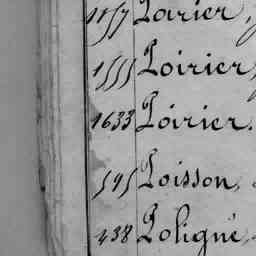 1157 Poirier,
1555 Poirier,
1633 Poirier.
545 Poisson,
438 Poligné,